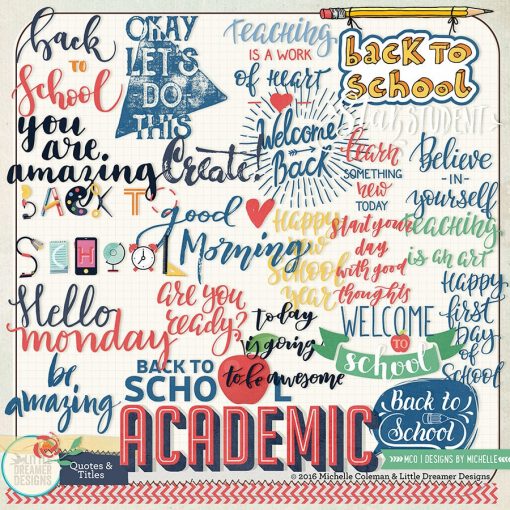 back
to
School
OKAY
LET'S
DO
THIS
Teaching
IS A WORK
of heart
BACK TO
SCHOOL
STUDENT
you
are
amazing
Create!
Welcome
Back
learn
SOMETHING
new
TODAY
Believe
-IN-
yourself
BACK TO
SCHOOL
good
Morning
Happy
new
School
year
Start your
day
with good
thoughts
Teaching
is an art
Hello
monday
are you
ready?
today
is going
to be awesome
WELCOME
TO
School
Happy
first
Day
of
School
be
amazing
BACK TO
SCHOOL
ACADEMIC
Back to
School
LITTLE
DREAMER
DESIGNS
Quotes &
Titles
MCO | DESIGNS BY MICHELLE
© 2016 Michelle Coleman & Little Dreamer Designs